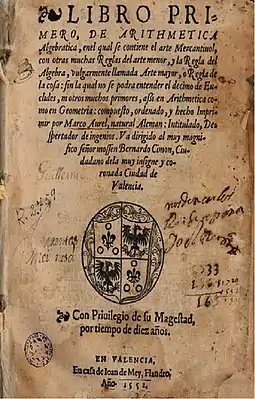 LIBRO PRI-
MERO, DE ARITHMETICA
Algebratica, enel qual se contiene el arte Mercantiuol,
con otras muchas Reglas del arte menor, y la Regla del
Algebra, vulgarmente llamada Arte mayor, ò Regla de
la cosa: sin la qual no se podra entender el decimo de Eu-
clides, ni otros muchos primores, assi en Arithmetica como
en Geometria: compuesto, ordenado, y hecho Imprimir
por Marco Aurel, natural Aleman: Intitulado, Des-
pertador de ingenios. Va dirigido al muy magni-
fico señor mossen Bernardo Cimon, Ciu-
dadano dela muy insigne y co-
ronada Ciudad de
Valencia.
Con Priuilegio de su Magestad,
por tiempo de diez años.
EN VALENCIA,
En casa de Ioan de Mey, Flandro,
Año. 1552.